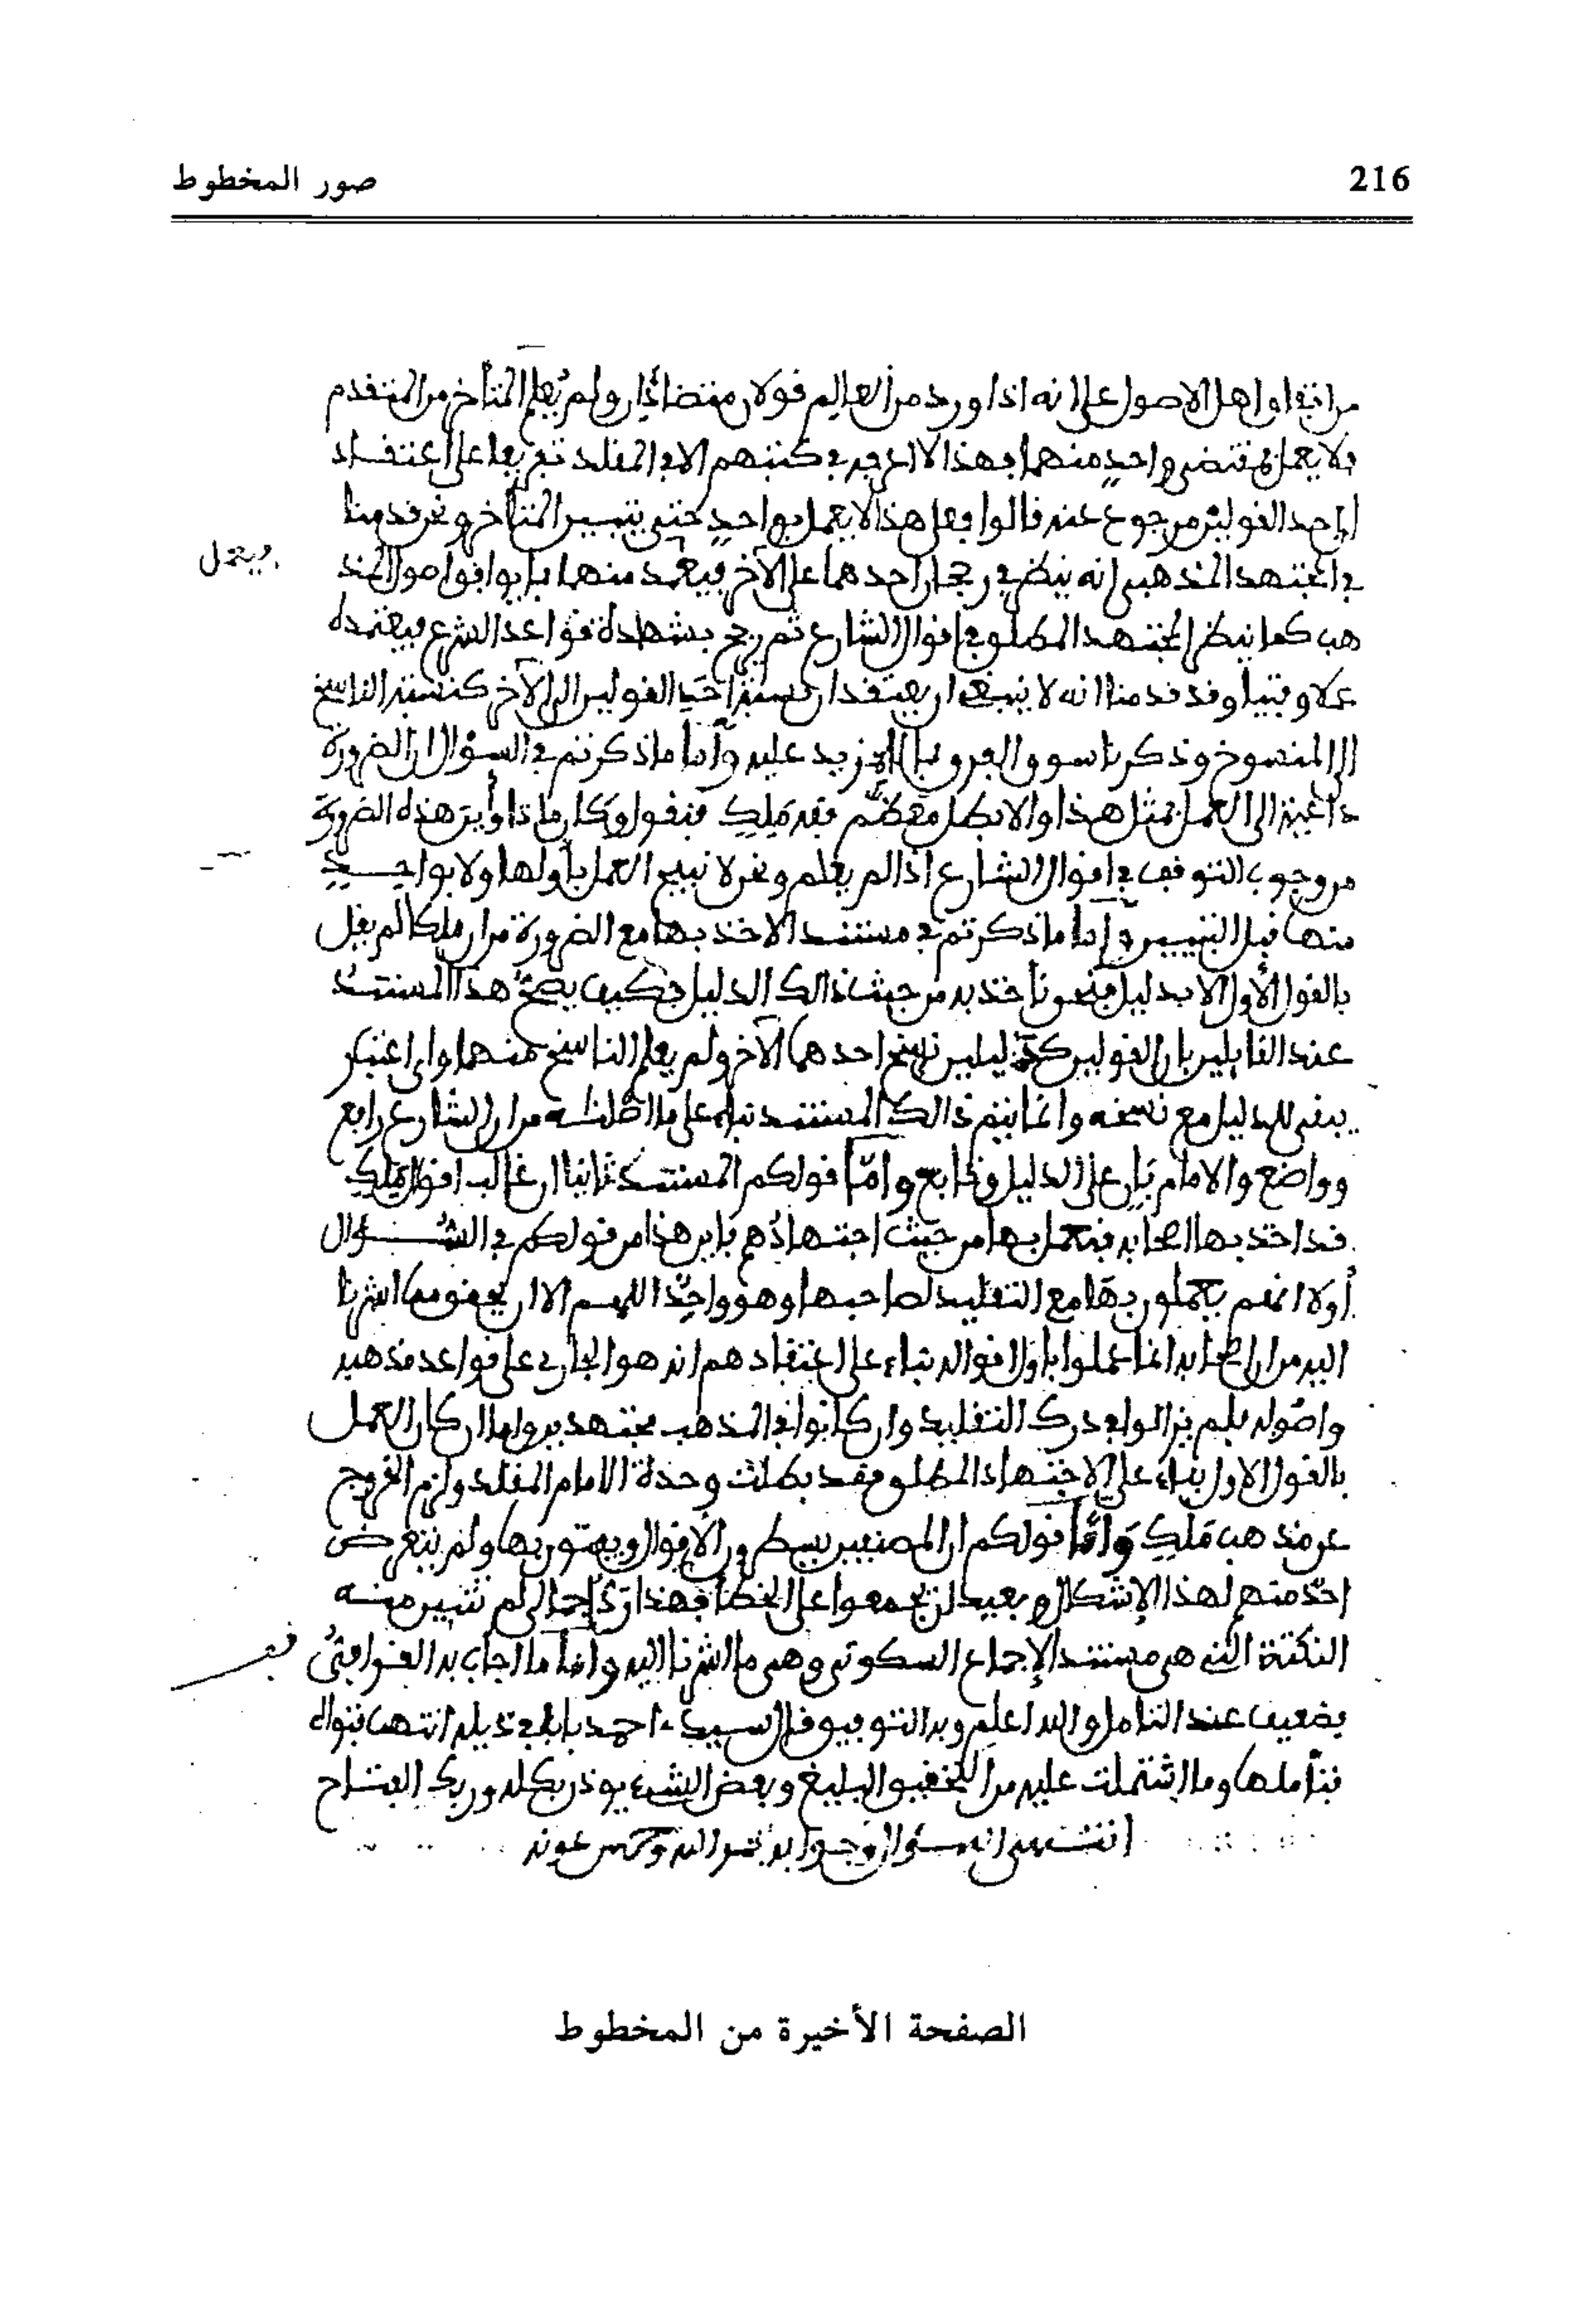 216
صور المخطوط
من اتفاق أهل الأصول على أنه إذا ورد من العالم قولان متضادان ولم يعلم المتأخر من المتقدم
فلا يعمل بمقتضى واحد منهما بهذا الاعتبار في كتبهم الا في المقلد تفريعا على اعتقاد
أن أحد القولين مرجوع عنه قالوا فعلى هذا لا يعمل بواحد حتى يتبين المتأخر ونحن قدمنا
في مجتهد المذهب انه ينظر في رجحان احدهما على الآخر فيعمد منهما بما يوافق اصول المذ
فيعمل
هب كما ينظر المجتهد المطلق في اقوال الشارع ثم يرجح بشهادة قواعد الشرع فيعتمده
عملا وفتيا وقد قدمنا انه لا ينبغي ان يعتقد ان نسبة احد القولين الى الآخر كنسبة الناسخ
الى المنسوخ وذكرنا سوق الفروق بما لا مزيد عليه وأما ما ذكرتم في السؤال ان الضرورة
داعية الى العمل بمثل هذا والا بطل معظم فقه ملك فنقول وكان ماذا وأين هذه الضرورة
من وجوب التوقف في اقوال الشارع اذا لم يعلم ونحن لا نبيح العمل بأولها ولا بواحد
منها قبل التبيين وأما ما ذكرتم في مستند الاخذ بها مع الضرورة من ان ملكا لم يقل
بالقول الأول الا بدليل فنحن نأخذ به من حيث ذالك الدليل فكيف يصح هذا المستند
عند القايلين بان القولين كدليلين نسخ احدهما الآخر ولم يعلم الناسخ منهما واي اعتبار
يبقى للدليل مع نسخه وانما يتم ذالك المستند بناء على ما اصلناه من ان الشارع رافع
وواضع والامام بان على الدليل وتابع وأمّا قولكم المستند ثانيا ان غالب اقوال ملك
قد اخذ بها اصحابه فنعمل بها من حيث اجتهادهم فأين هذا من قولكم في السؤال
أولا انهم يعملون بها مع التقليد لصاحبها وهو واحد اللهم الا ان يحوموا على ما اشرنا
اليه من ان اصحابه انما عملوا بأول اقواله بناء على اعتقادهم انه هو الجاري على قواعد مذهبه
واصوله فلم يزالوا في درك التقليد وان كانوا في المذهب مجتهدين واما ان كان العمل
بالقول الاول بناء على الاجتهاد المطلق فقد بطلت وحدة الامام المقلد ولزم الخروج
عن مذهب ملك وأمّا قولكم ان المصنفين يسطرون الاقوال ويفتون بها ولم يتعرض
احد منهم لهذا الإشكال وبعيد ان يجمعوا على الخطأ فهذا
النكتة التي هي مستند الإجماع السكوتي وهي ما اشرنا اليه وأما ما اجاب به القرافي
فضعيف عند التأمل والله اعلم وبه التوفيق قال السيد احمد بابا في تذييله انتهت فتواه
فتأملها وما اشتملت عليه من التحقيق البليغ وبعض الشيء يوذن بكله وربك الفتاح
انتهى السؤال وجوابه بحمد الله وحسن عونه
الصفحة الأخيرة من المخطوط